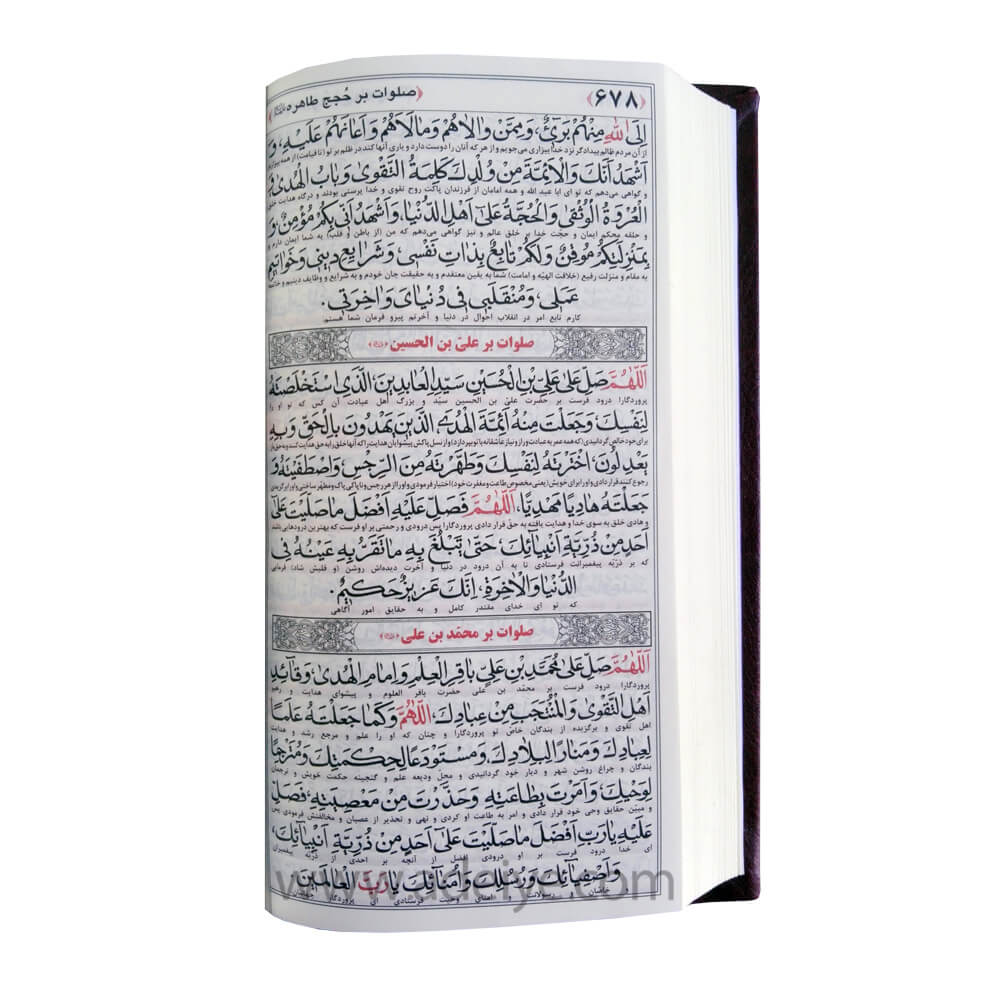 ﴿۶۷۸﴾ ﴿صلوات بر حُجج طاهره
اِلَى اللّٰهِ مِنْهُمْ بَرِیٌٔ، وَمِمَّنْ وَالاهُمْ وَمالَاَهُمْ وَاَعانَهُمْ عَلَیْهِ، وَ
از آن مردم ظالم بیدادگر نزد خدا بیزاری می‌جویم و از هر که آنان را دوست دارد و یاری آنها کند در ظلم بر تو (تا قیامت) از همه بیزاری
اَشْهَدُ اَنَّكَ وَالْاَئِمَّةَ مِنْ وُلْدِكَ كَلِمَةُ التَّقْوٰى وَبابُ الْهُدٰى وَ
و گواهی می‌دهم که تو ای ابا عبد الله و همه امامان از فرزندان پاکت روح تقوی و خدا پرستی بودند و درگاه هدایت خلق
الْعُرْوَةُ الْوُثْقٰى وَالْحُجَّةُ عَلٰى اَهْلِ الدُّنْیا، وَاَشْهَدُ اَنّى بِكُمْ مُؤْمِنٌ وَ
و حلقه محکم ایمان و حجت خدا بر خلق عالم و نیز گواهی می‌دهم که من (از باطن و قلب) به شما ایمان دارم
بِمَنْزِلَتِكُمْ مُوقِنٌ وَلَكُمْ تابِعٌ بِذاتِ نَفْسى، وَشَرایِعِ دینى وَخَواتیمِ
به مقام و منزلت رفیع (خلافت الهیّه و امامت) شما به یقین معتقدم و به حقیقت جان خودم و به شرایع و وظایف دینیم و خاتمه
عَمَلى، وَمُنْقَلَبى فى دُنْیاىَ وَاٰخِرَتى.
کارم تابع امر در انقلاب احوال در دنیا و آخرتم پیرو فرمان شما هستم
صلوات بر علیّ بن الحسین
اَللّٰهُمَّ صَلِّ عَلٰى عَلِىِّ بْنِ الْحُسَیْنِ سَیِّدِ الْعابِدینَ، الَّذِى اسْتَخْلَصْتَهُ
پروردگارا درود فرست بر حضرت علیّ بن الحسین سیّد و بزرگ اهل عبادت آن کس که تو او را
لِنَفْسِكَ، وَجَعَلْتَ مِنْهُ اَئِمَّةَ الْهُدَى، الَّذینَ یَهْدُونَ بِالْحَقِّ وَبِهِ
برای خود خالص گردانیدی (که همه عمر به عبادت و راز و نیاز عاشقانه با تو بپردازد) و از نسل پاکش پیشوایان هدایت را که آنها خلق را به حق هدایت کنند و به حق
یَعْدِلُونَ، اخْتَرْتَهُ لِنَفْسِكَ وَطَهَّرْتَهُ مِنَ الرِّجْسِ وَاصْطَفَیْتَهُ وَ
رجوع کنند قرار دادی و او را برای خویش (یعنی مخصوص طاعت و مغفرت خود) اختیار فرمودی و او را از هر رجس و ناپاکی پاک و مطهّر ساختی و او را برگزیدی
جَعَلْتَهُ هادِیًا مَهْدِیًّا، اَللّٰهُمَّ فَصَلِّ عَلَیْهِ اَفْضَلَ ما صَلَّیْتَ عَلٰى
و هادی خلق به سوی خدا و هدایت یافته به حق قرار دادی پروردگارا پس درودی و رحمتی بر او فرست که بهترین درودهایی باشد
اَحَدٍ مِنْ ذُرِّیَّةِ اَنْبِیائِكَ، حَتّٰى تَبْلُغَ بِهِ ما تَقَرُّ بِهِ عَیْنُهُ فِى
که بر ذرّیه پیغمبرانت فرستادی تا به آن درود در دنیا و آخرت دیده‌اش روشن (و قلبش شاد) فرمایی
الدُّنْیا وَالْاٰخِرَةِ، اِنَّكَ عَزیزٌ حَكیمٌ.
که تو ای خدای مقتدر کامل و به حقایق امور آگاهی
صلوات بر محمّد بن علی
اَللّٰهُمَّ صَلِّ عَلٰى مُحَمَّدِ بْنِ عَلِىٍّ باقِرِ الْعِلْمِ وَاِمامِ الْهُدٰى، وَقائِدِ
پروردگارا درود فرست بر محمّد بن علی حضرت باقر العلوم و پیشوای هدایت و رهبر
اَهْلِ التَّقْوٰى وَالْمُنْتَجَبِ مِنْ عِبادِكَ، اَللّٰهُمَّ وَكَما جَعَلْتَهُ عَلَمًا
اهل تقوی و برگزیده از بندگان خاص تو پروردگارا و چنان که او را علم و مرجع رشد و هدایت
لِعِبادِكَ وَمَنارًا لِبِلادِكَ، وَمُسْتَوْدَعًا لِحِكْمَتِكَ وَمُتَرْجِمًا
بندگان و چراغ روشن شهر و دیار خود گردانیدی و محل ودیعه علم و گنجینه حکمت خویش و ترجمان
لِوَحْیِكَ، وَاَمَرْتَ بِطاعَتِهِ وَحَذَّرْتَ مِنْ مَعْصِیَتِهِ، فَصَلِّ
و مبیّن حقایق وحی خود قرار دادی و امر به طاعت او کردی و نهی و تحذیر از عصیان و مخالفتش فرمودی پس
عَلَیْهِ یا رَبِّ اَفْضَلَ ما صَلَّیْتَ عَلٰى اَحَدٍ مِنْ ذُرِّیَّةِ اَنْبِیائِكَ،
ای خدا درود فرست بر او درودی افضل از آنچه بر احدی از ذرّیه پیغمبران
وَاَصْفِیائِكَ وَرُسُلِكَ وَاُمَنائِكَ یا رَبَّ الْعالَمینَ
خاصان و رسولانت و امنای وحیت فرستادی ای پروردگار جهانیان
www.adeiye.com